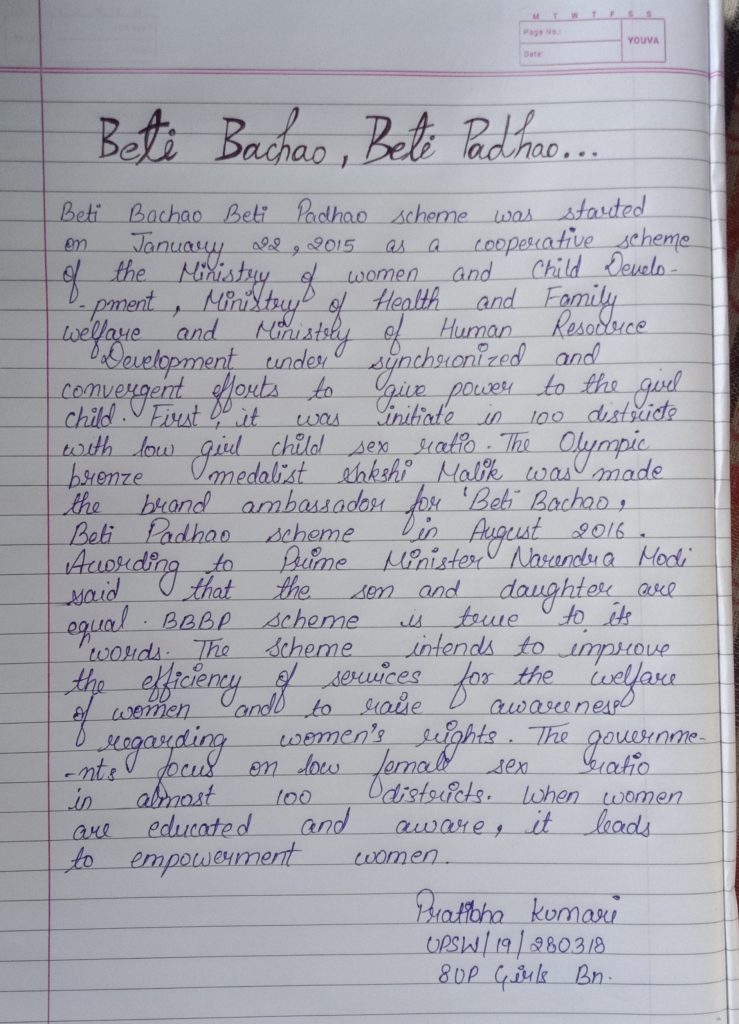 M T W T F S S
Page No.:
YOUVA
Date:
Beti Bachao, Beti Padhao...
Beti Bachao Beti Padhao scheme was started
on January 22, 2015 as a cooperative scheme
of the Ministry of women and Child Develo-
-pment, Ministry of Health and Family
welfare and Ministry of Human Resource
Development under synchronized and
convergent efforts to give power to the girl
child. First, it was initiate in 100 districts
with low girl child sex ratio. The Olympic
bronze medalist Shkshi Malik was made
the brand ambassador for 'Beti Bachao,
Beti Padhao scheme in August 2016.
According to Prime Minister Narendra Modi
said that the son and daughter are
equal. BBBP scheme is true to its
words. The Scheme intends to improve
the efficiency of services for the welfare
of women and to raise awareness
regarding women's rights. The governme-
-nts focus on low female sex ratio
in almost 100 districts. When women
are educated and aware, it leads
to empowerment women.
Pratibha Kumari
UPSW/19/280318
8UP Girls Bn.